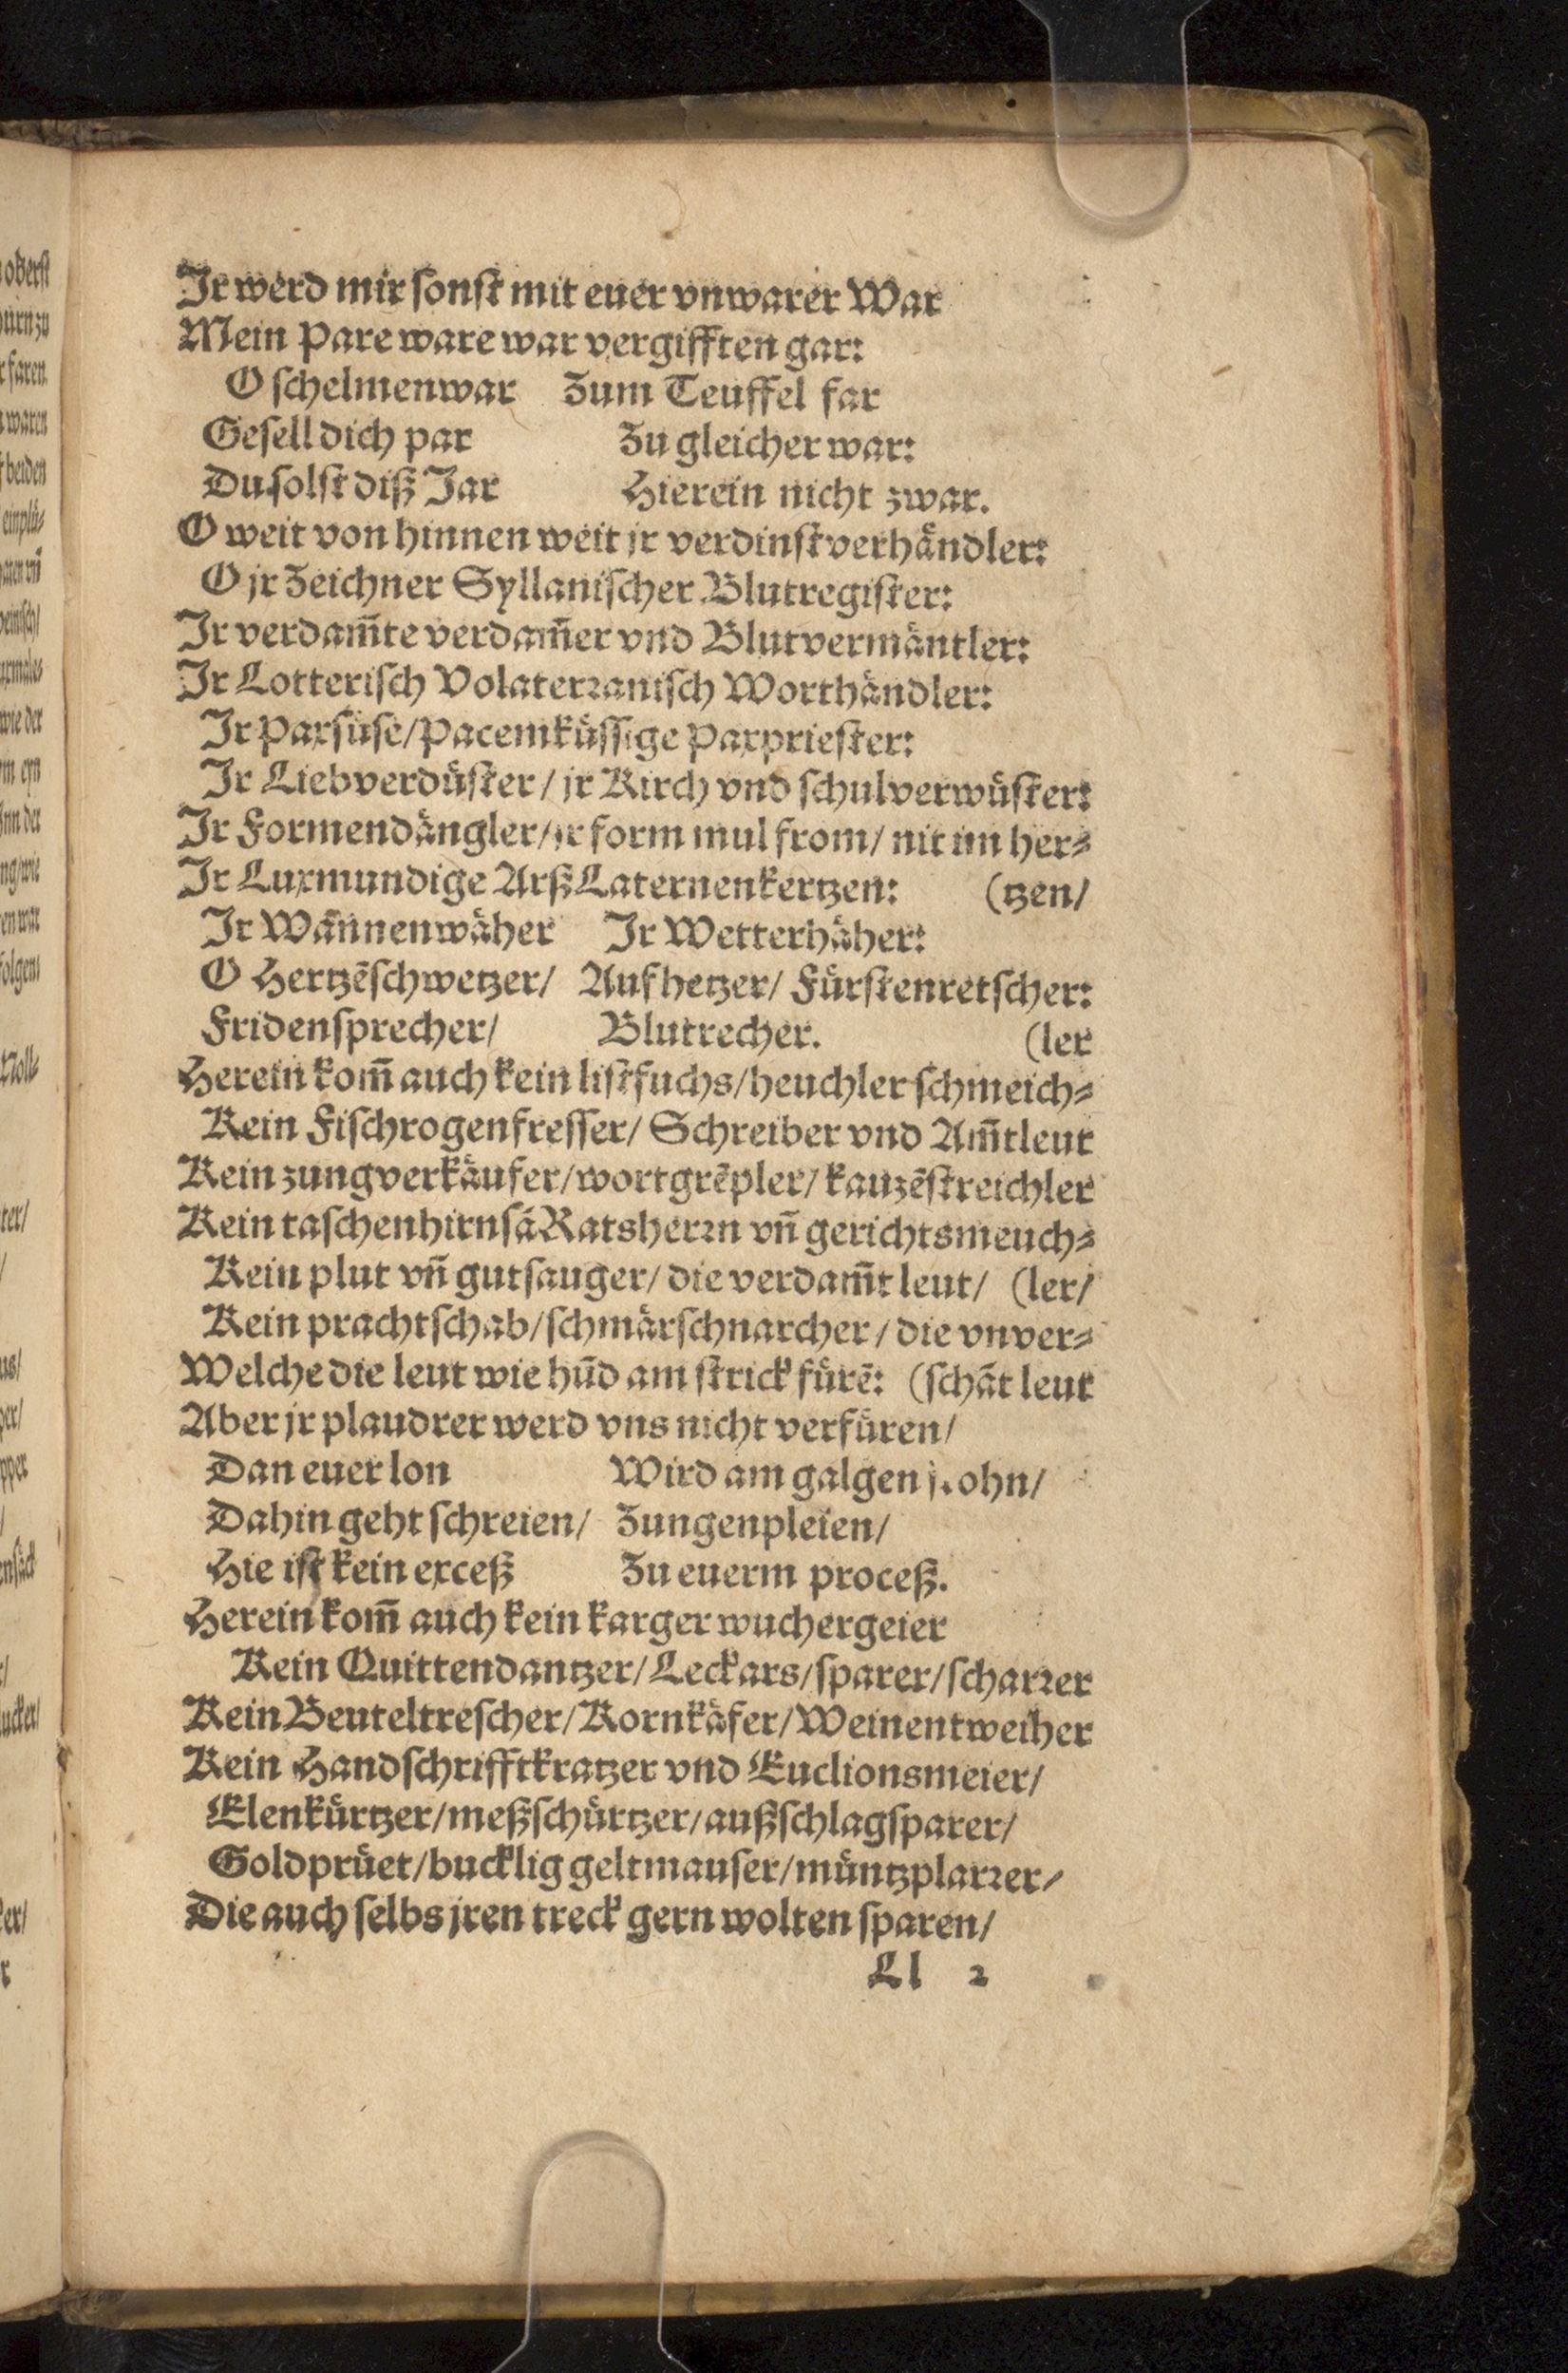 Ir werd mir ſonſt mit euer vnwarer War
Mein Pare ware war vergifften gar:
O ſchelmenwar Zum Teuffel far
Geſell dich par Zu gleicher war:
Du ſolſt diß Jar Hierein nicht zwar.
O weit von hinnen weit jr verdinſtverhaͤndler:
O jr Zeichner Syllaniſcher Blutregiſter:
Ir verdam̃te verdam̃er vnd Blutvermaͤntler:
Ir Lotteriſch Volaterꝛaniſch Worthaͤndler:
Ir Paxſuͤſe/Pacemkuͤſſige Paxprieſter:
Ir Liebverduͤſter/ jr Kirch vnd ſchulverwuͤſter:
Ir Formendaͤngler/jr form mul from/ nit im her⸗
Ir Luxmundige Arß Laternenkertzen: (tzen/
Ir Wannenwaͤher Ir Wetterhaͤher:
O Hertzẽſchwetzer/ Aufhetzer/ Fuͤrſtenretſcher:
Fridenſprecher/ Blutrecher. (ler
Herein kom̃ auch kein liſtfuchs/heuchler ſchmeich⸗
Kein Fiſchrogenfreſſer/ Schreiber vnd Am̃tleut
Kein zungverkaͤufer/wortgrẽpler/ kauzẽſtreichler
Kein taſchenhirnſã Ratsherꝛn vñ gerichtsmeuch⸗
Kein plut vñ gutſauger/ die verdam̃t leut/ (ler/
Kein prachtſchab/ſchmaͤrſchnarcher/ die vnver⸗
Welche die leut wie hũd am ſtrick fuͤrẽ: (ſchãt leut
Aber jr plaudrer werd vns nicht verfuͤren/
Dan euer lon Wird am galgen ſtohn/
Dahin geht ſchreien/ Zungenpleien/
Hie iſt kein exceß Zu euerm proceß.
Herein kom̃ auch kein karger wuchergeier
Kein Quittendantzer/Leckars/ſparer/ſcharꝛer
Kein Beuteltreſcher/Kornkaͤfer/Weinentweiher
Kein Handſchrifftkratzer vnd Euclionsmeier/
Elenkuͤrtzer/meßſchuͤrtzer/außſchlagſparer/
Goldpruͤet/bucklig geltmauſer/muͤntzplarꝛer/
Die auch ſelbs jren treck gern wolten ſparen/
Ll 2